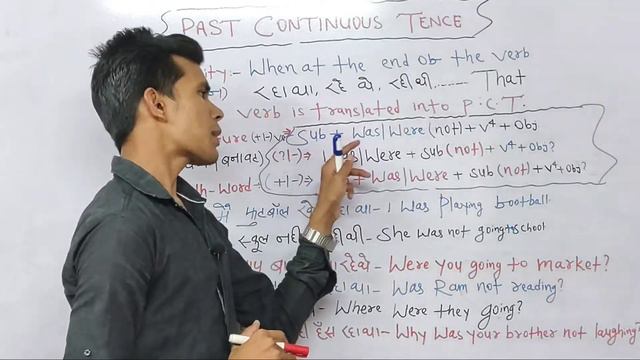 PAST CONTINUOUS TENCE
When at the end of the verb
That
verb is translated into P.C.T.
(+|-) Sub + Was|Were (not) + V⁴ + Obj
(?|-)→ Was|Were + Sub (not) + V⁴ + Obj?
Wh-Word- (+|-)→ + Was|Were + Sub (not) + V⁴ + Obj?
मैं फुटबॉल रहा था- I Was Playing football
स्कूल नहीं रही थी- She Was not going to school
रहे थे- Were you going to market?
Was Ram not reading?
Where Were they going?
हँस रहा था- Why Was your brother not laughing?